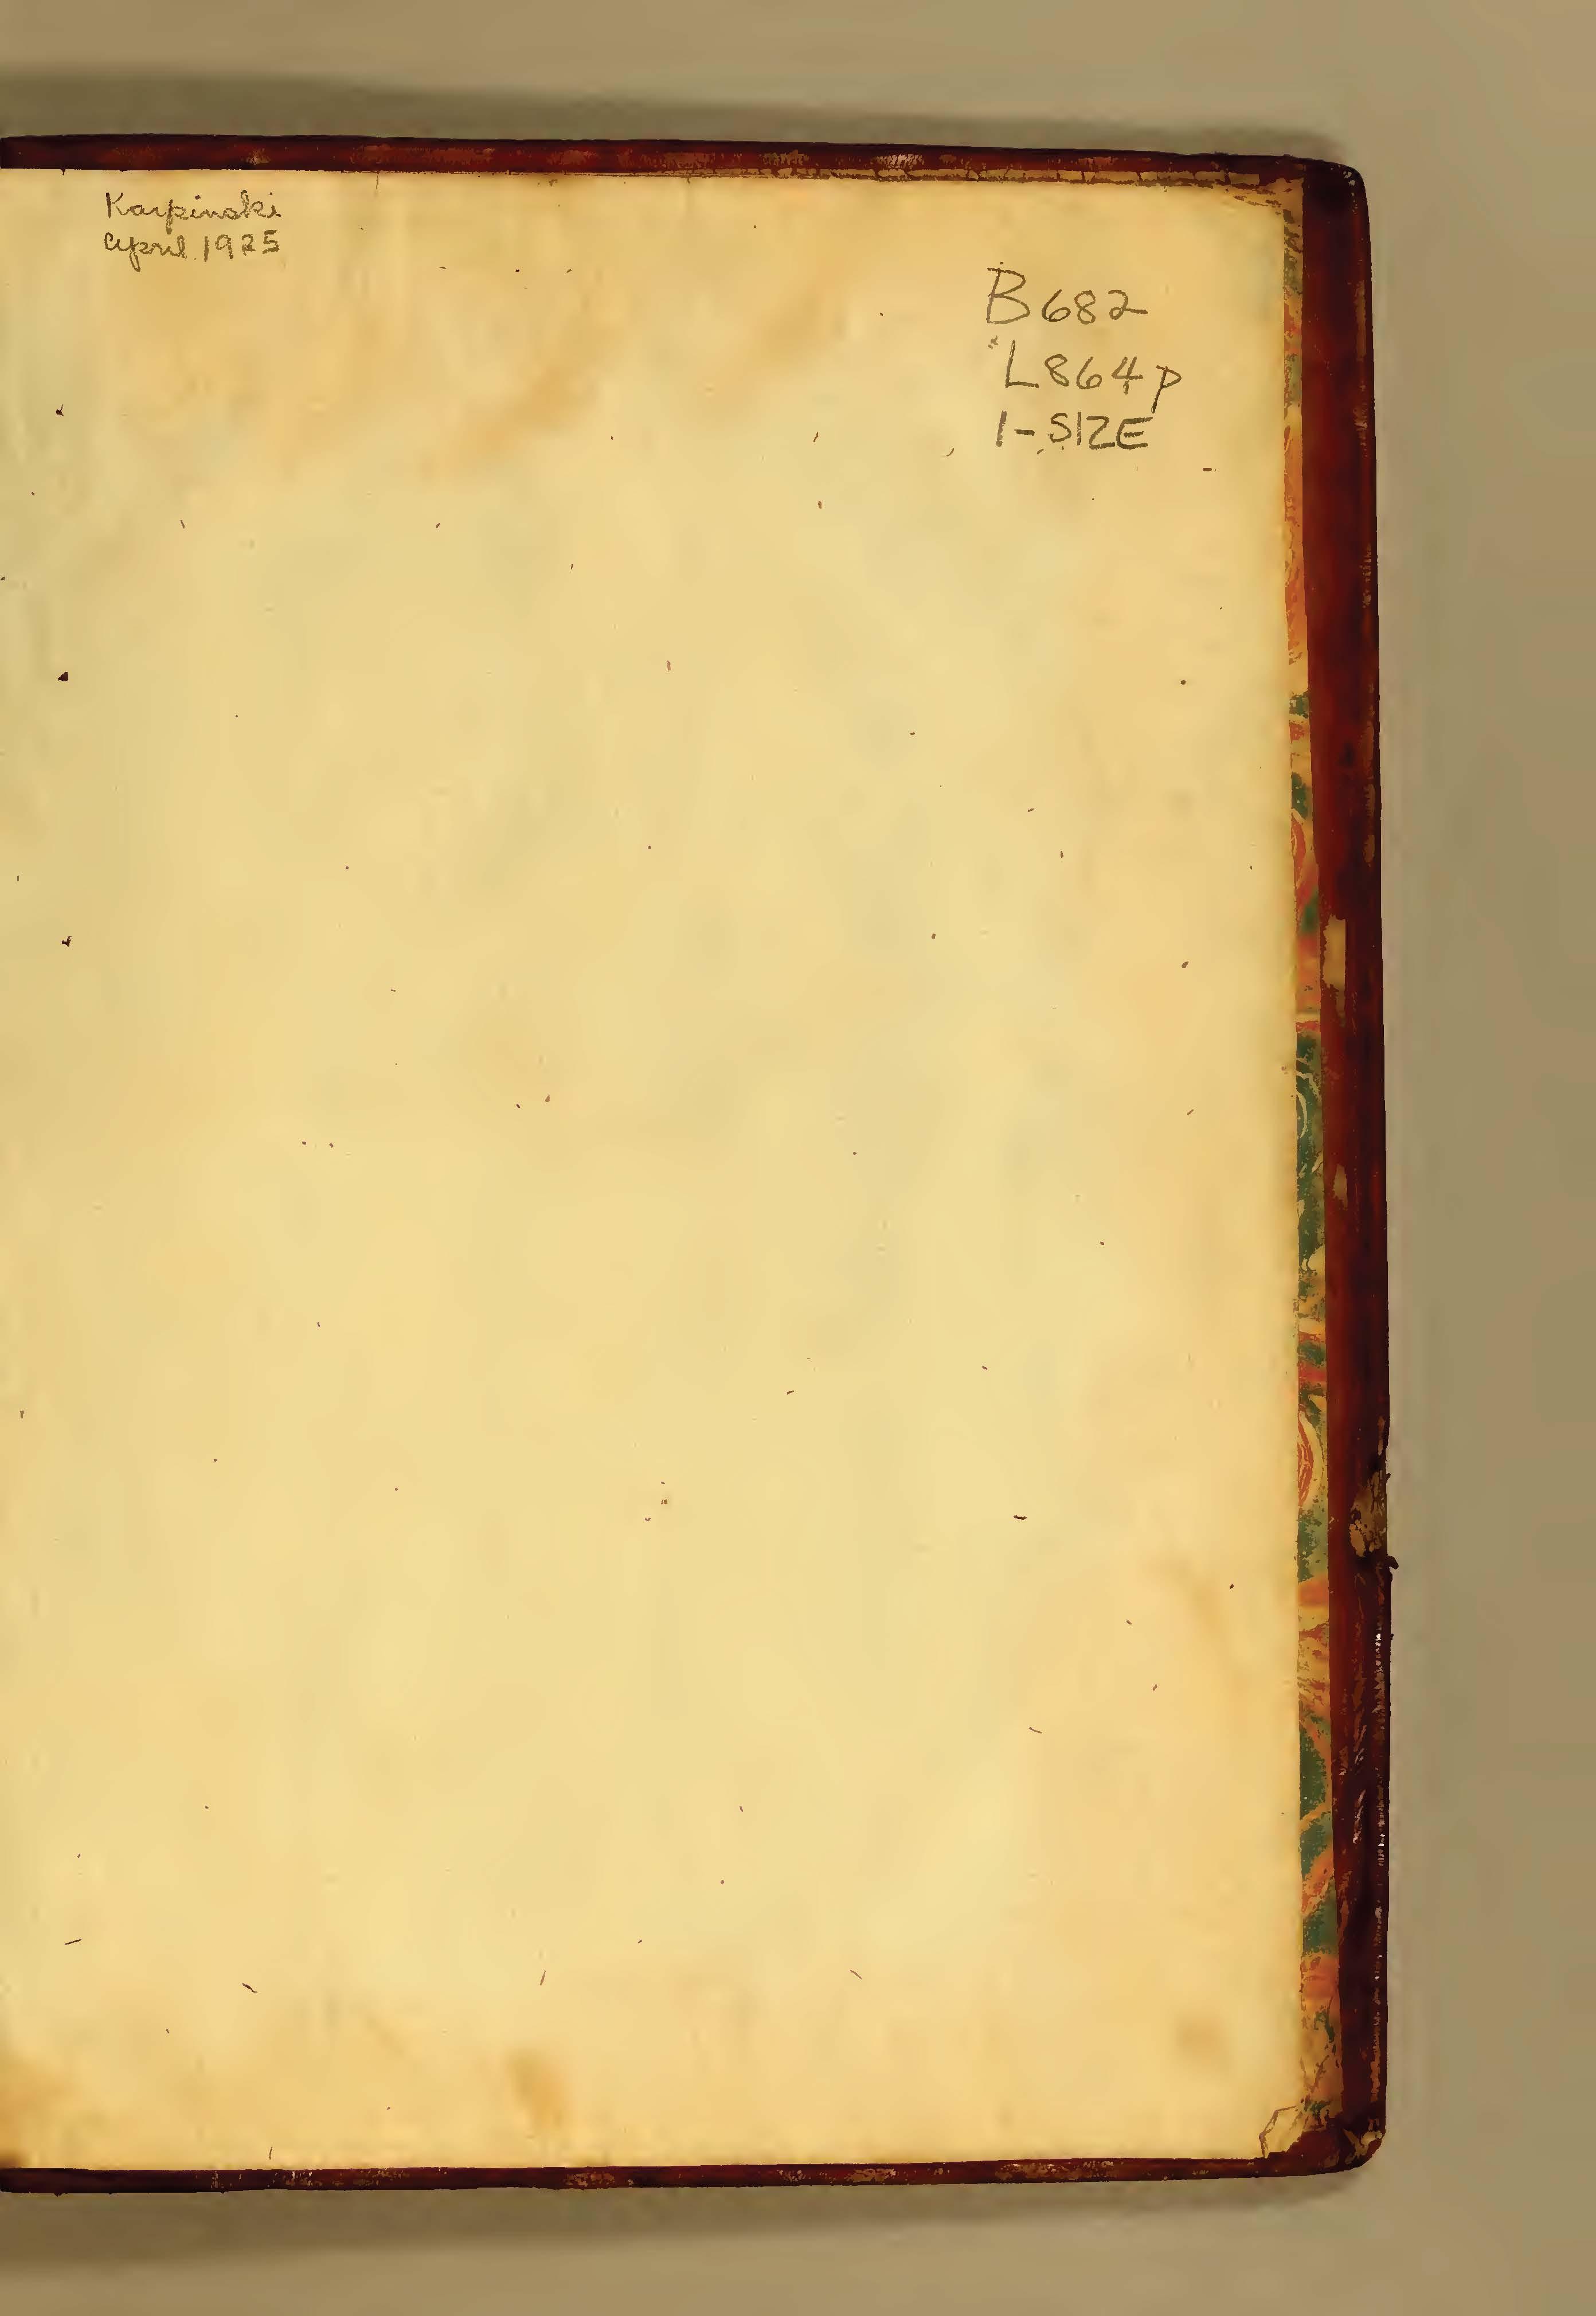 Karpinski
April 1925
B682
L864p
1-SIZE